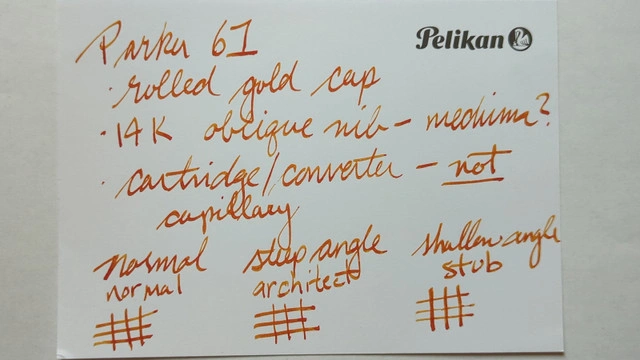 Parker 61
Pelikan
· rolled gold cap
· 14K oblique nib - medium?
· cartridge/converter - not
capillary
normal steep angle shallow angle
normal architect stub